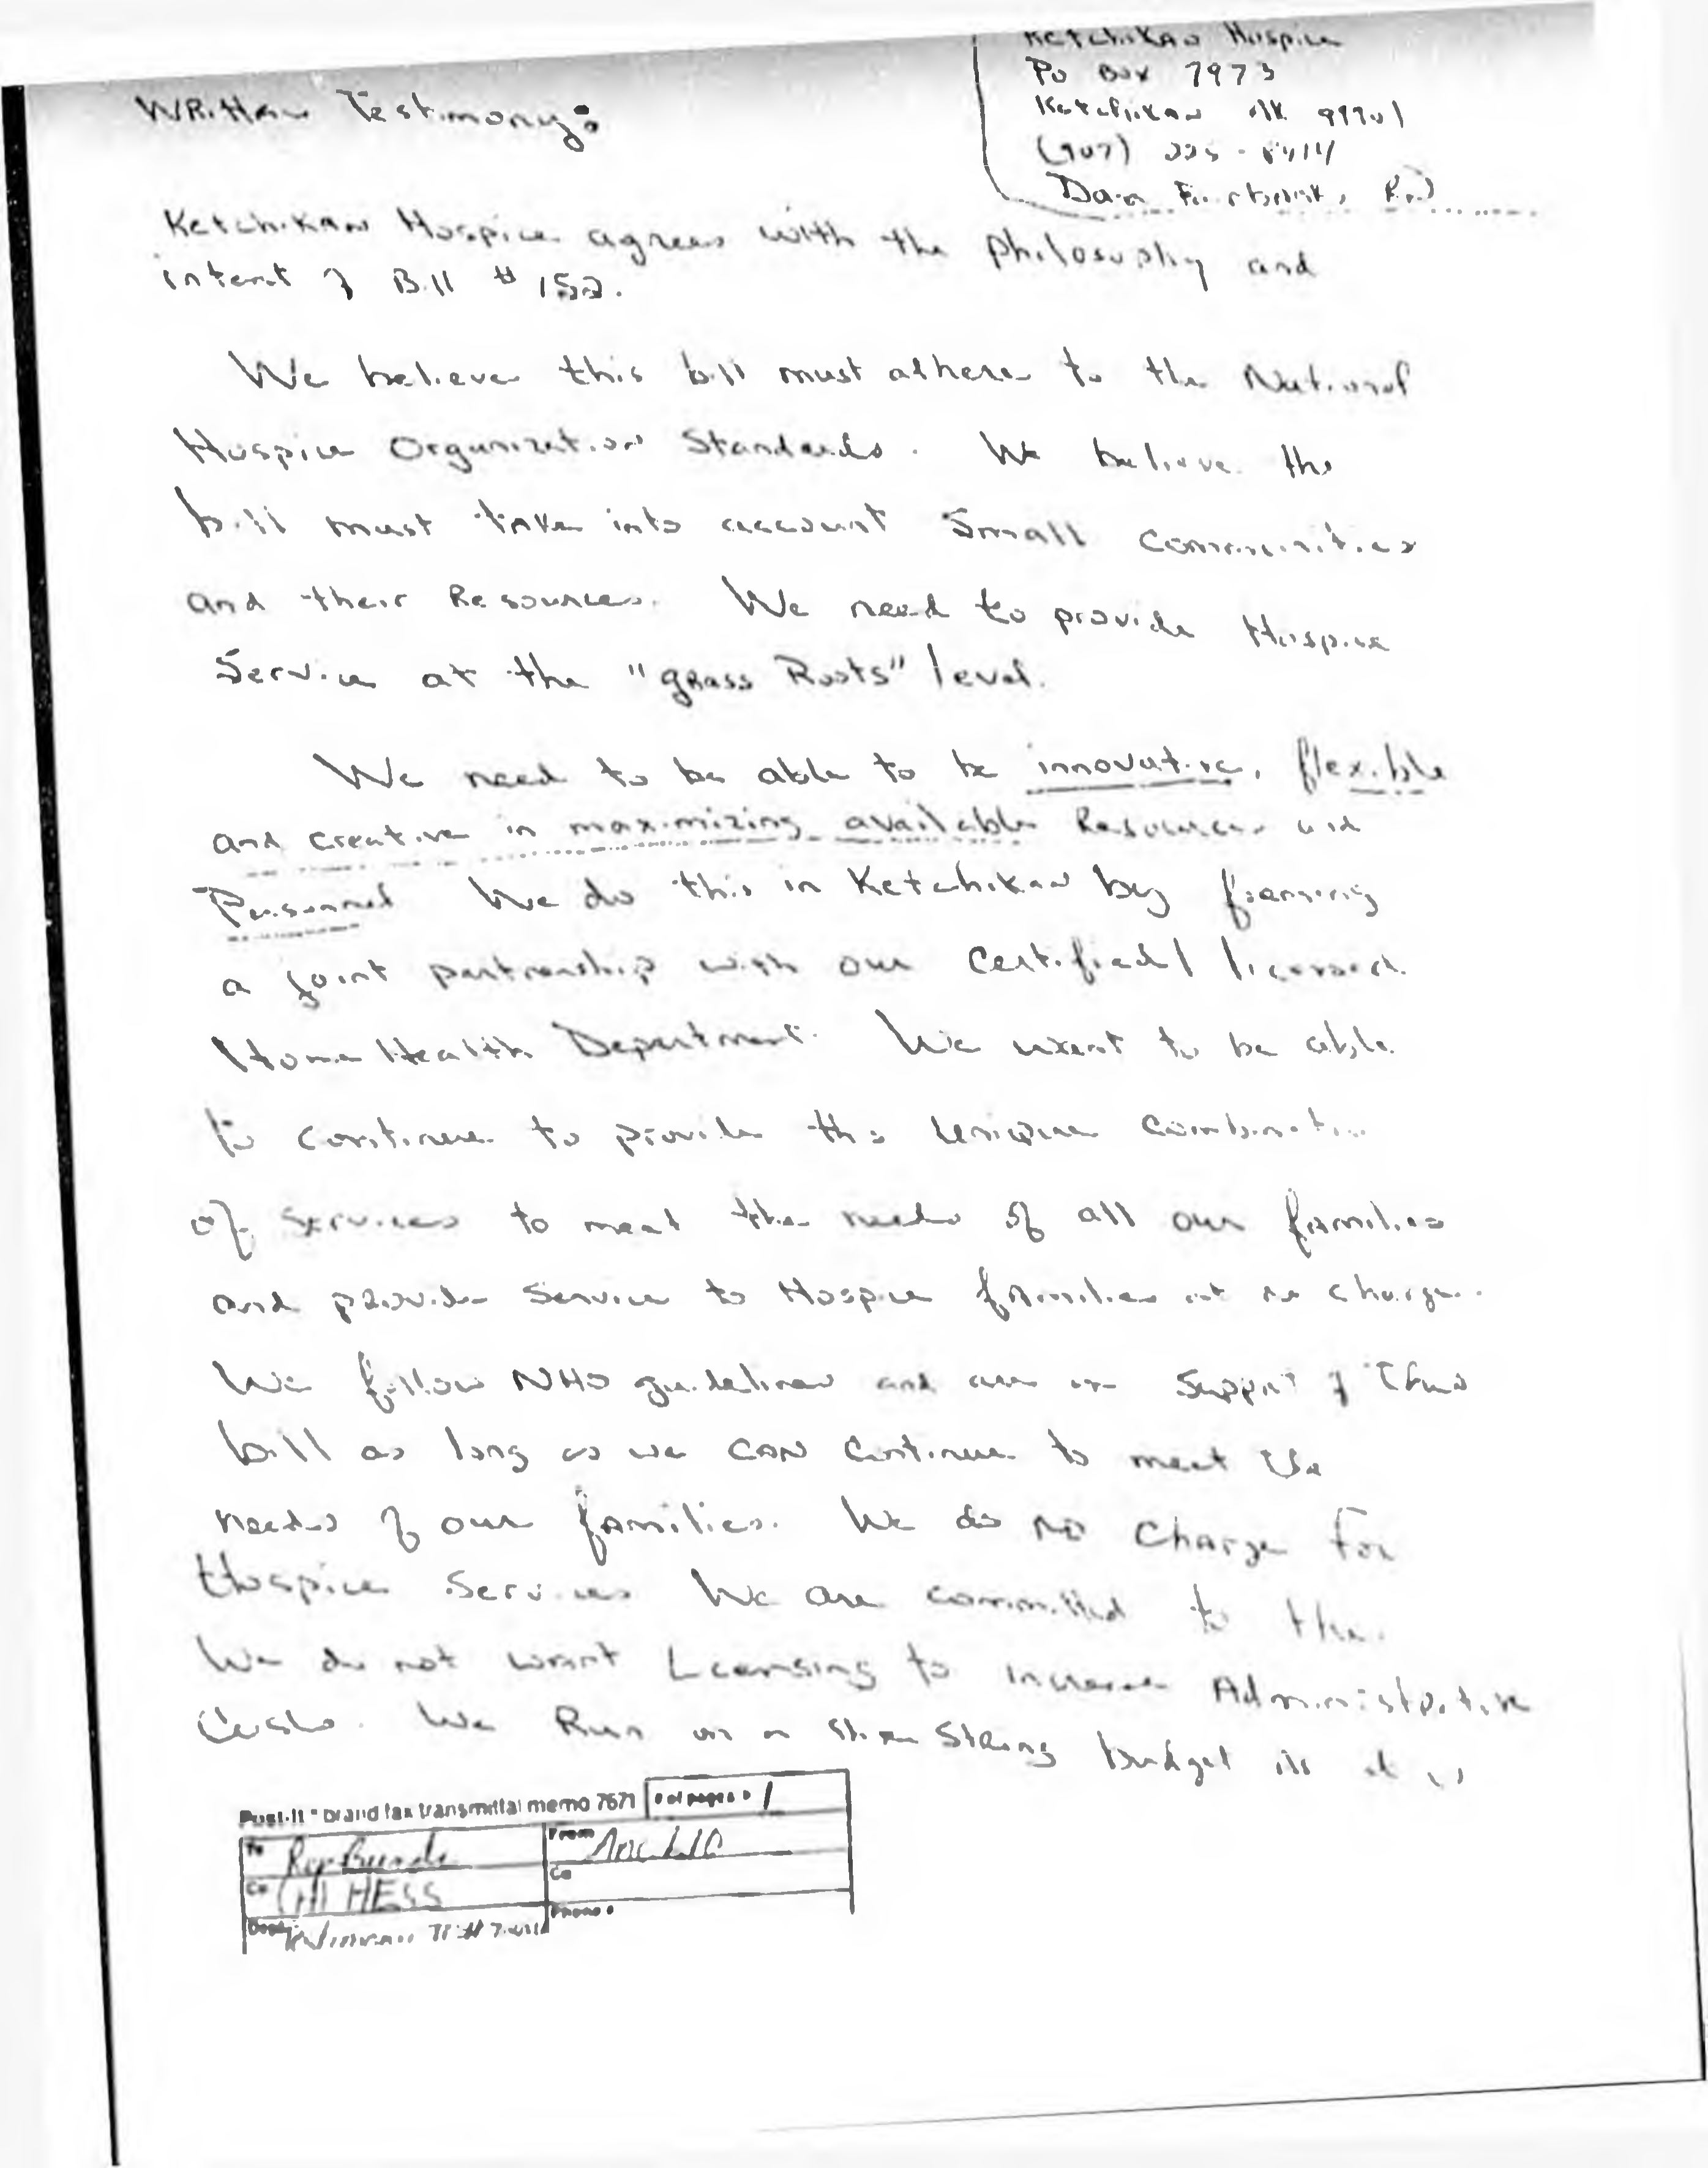 Ketchikan Hospice
Po Box 7973
Ketchikan AK 99901
(907)
Written Testimony:
Ketchikan Hospice agrees with the philosophy and
intent of Bill # 152.
We believe this bill must adhere to the National
Hospice Organization Standards. We believe the
bill must take into account Small Communities
and their Resources. We need to provide Hospice
Service at the "grass Roots" level.
We need to be able to be innovative, flexible
and creative in maximizing available Resources and
Personnel We do this in Ketchikan by forming
a joint partnership with our Certified/licensed
Home Health Department. We want to be able
to continue to provide this unique combination
of services to meet the needs of all our families
and provide Service to Hospice families at no charge.
We follow NHO guidelines and are in Support of this
bill as long as we can continue to meet the
needs of our families. We do no charge for
Hospice Services We are committed to the.
We do not want Licensing to increase Administrative
Costs. We Run on a Shoe String budget as it is
Post-It brand fax transmittal memo 7671 # of pages 1
To Rep Bunde From Anc LIO
Co (H) HESS Co
Dept. Phone #